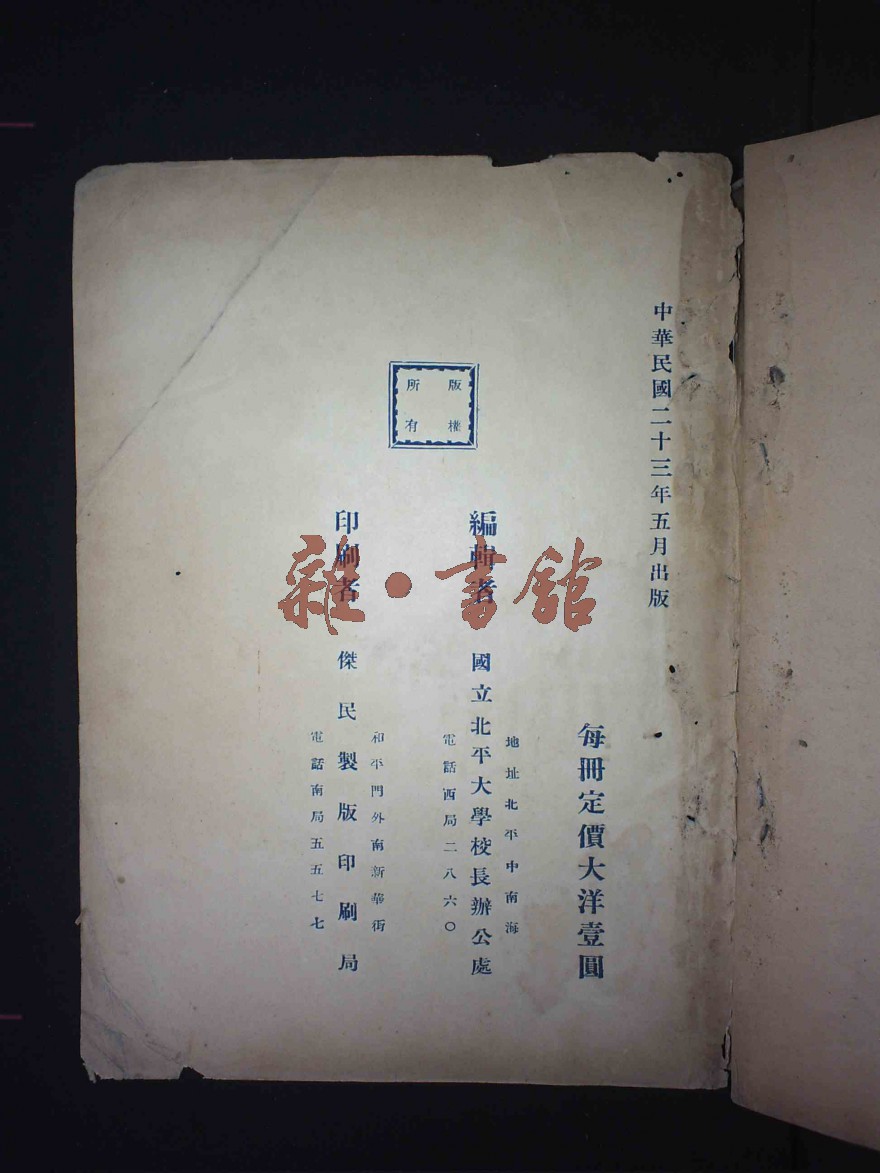 中華民國二十三年五月出版
每冊定價大洋壹圓
編輯者 國立北平大學校長辦公處
地址北平中南海
電話西局二八六〇
印刷者 傑民製版印刷局
和平門外南新華街
電話南局五五七七
版權
所有
雜·書館